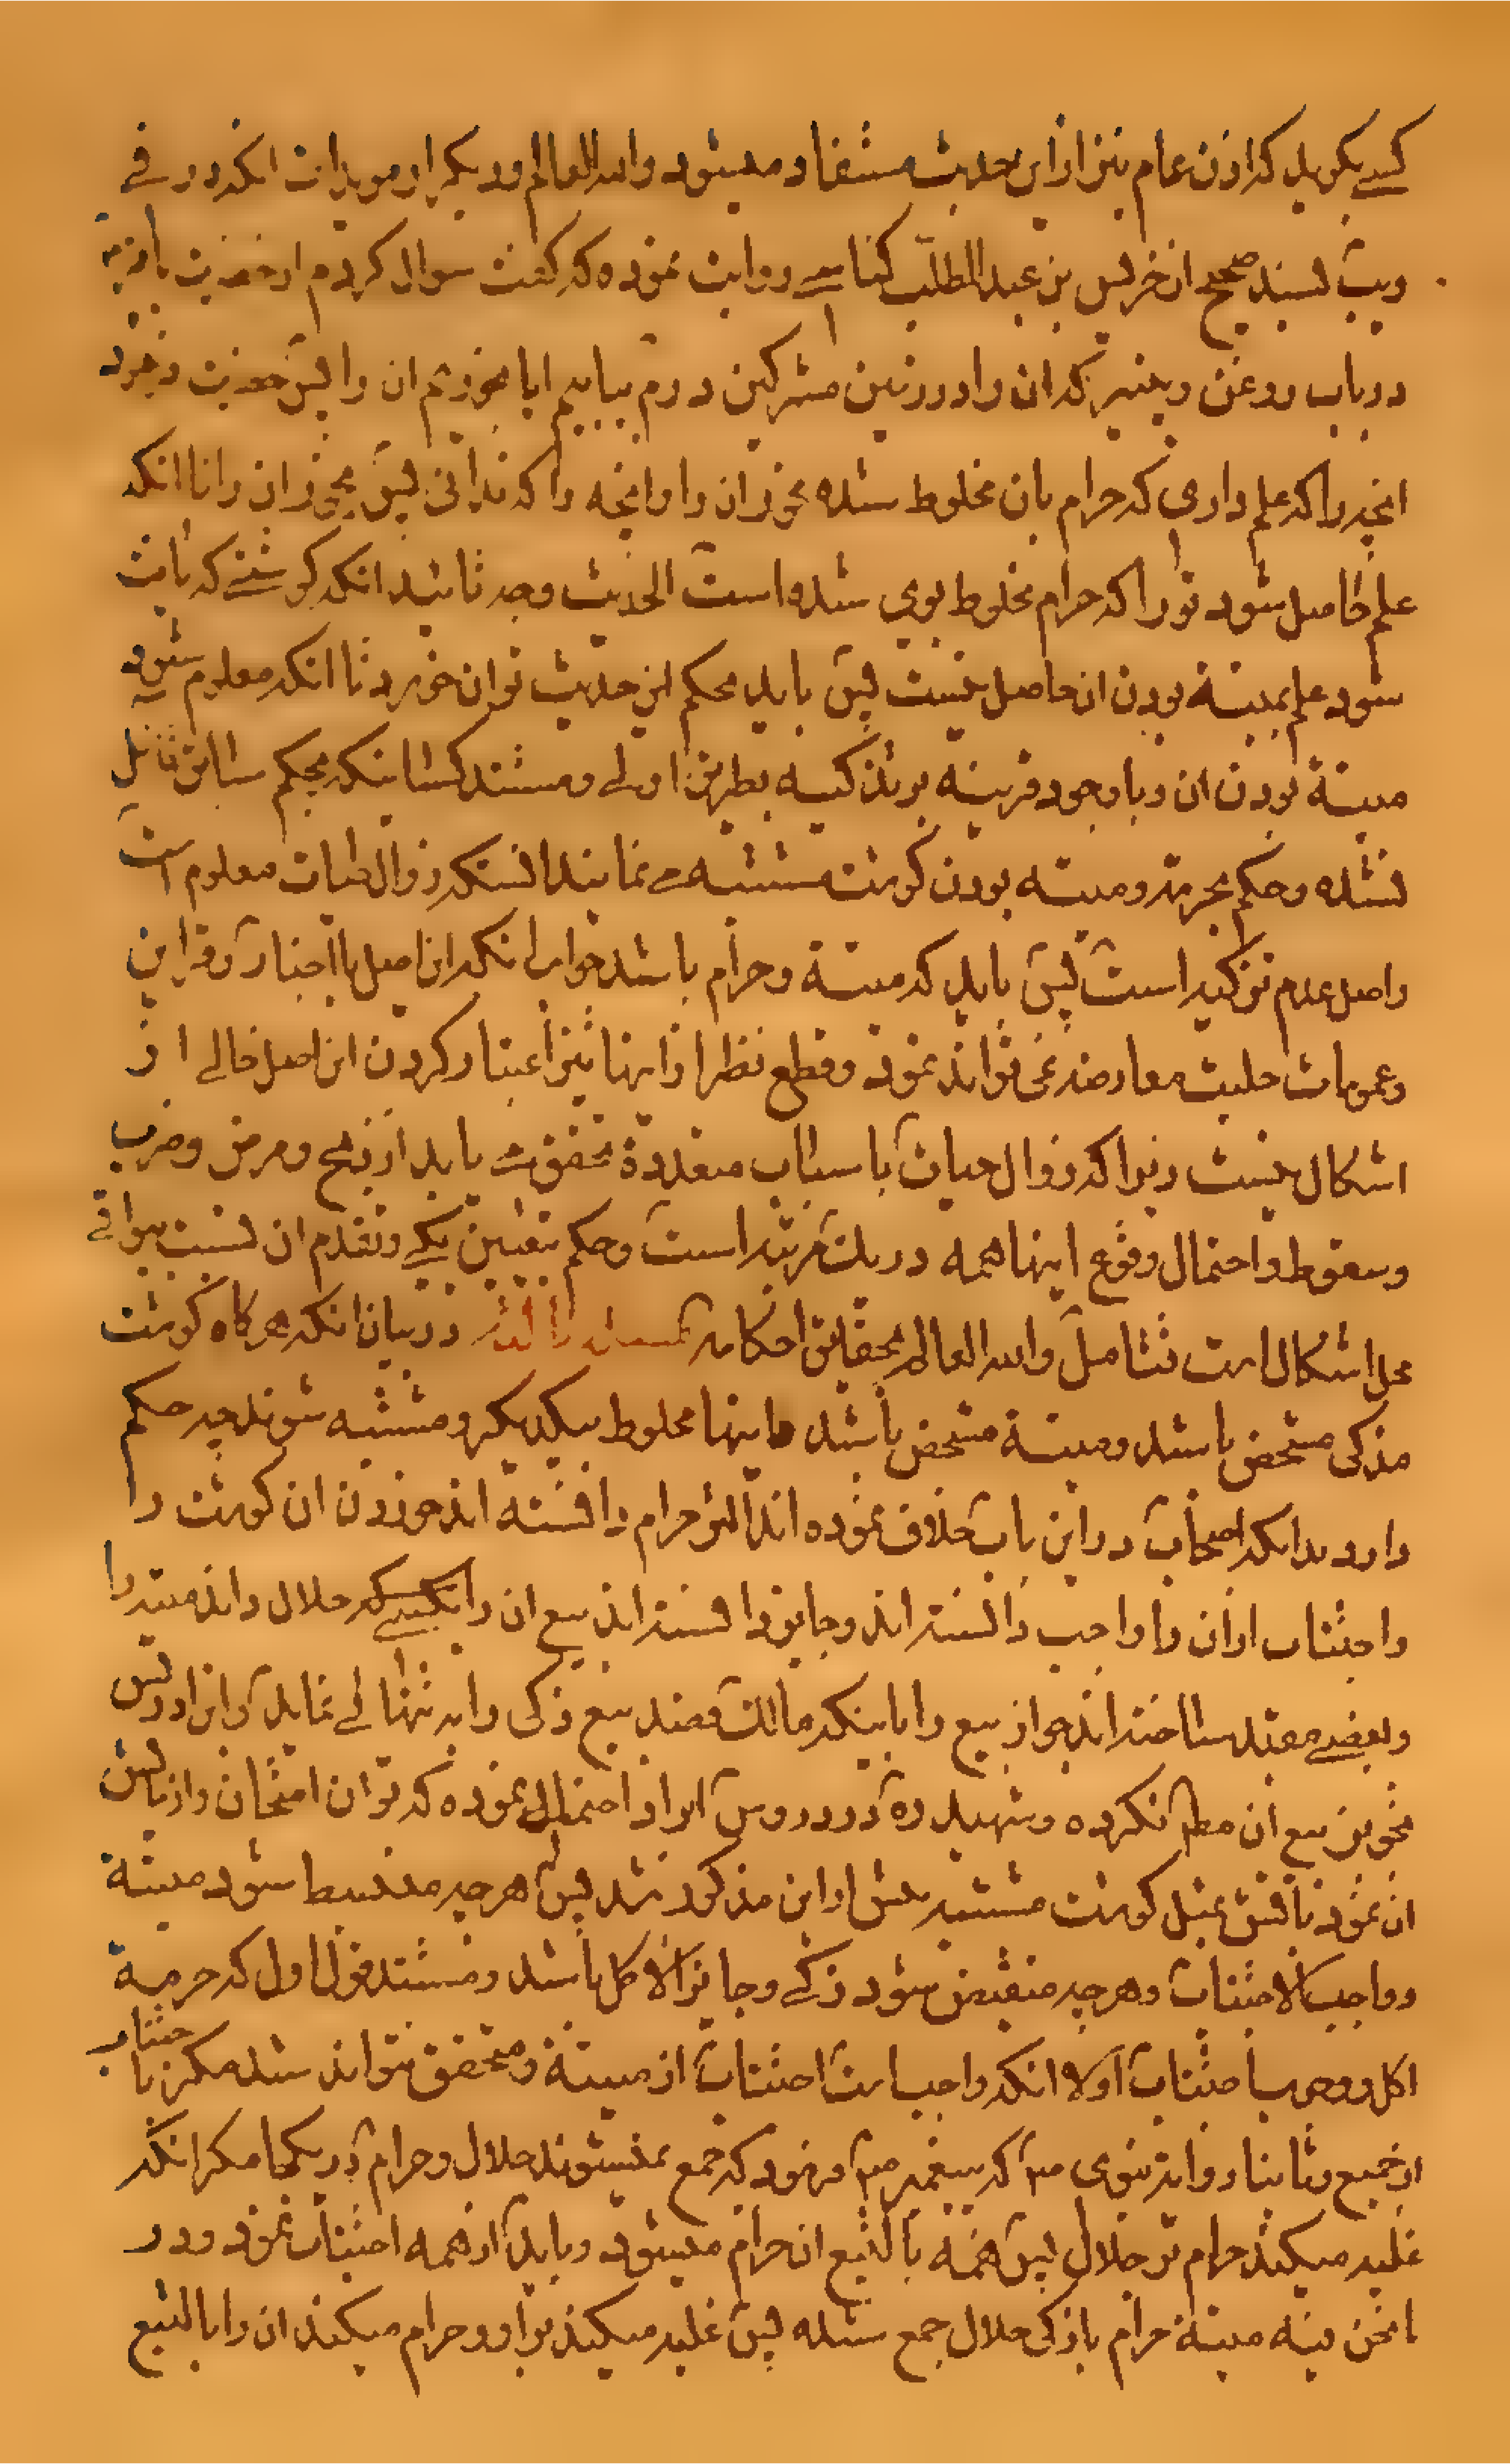 کسے بکوید که اذن عام نیز از این حدیث مستفاد میشود والله العالم ودیکر از مویدات انکه در فے
ویب بسند صحیح از ضریس بن عبدالمطلب کناسے روایت نموده که کفت سوال کردم از حضرت باقر
در باب روغن وپنیر که ان را در زمین مشرکین در روم بیابیم ایا بخوریم ان را پس حضرت فرمود
انچه را که علم داری که حرام بان مخلوط شده مخور ان را وانچه را که ندانی پس بخور ان را تا انکه
علم حاصل شود تو را که حرام مخلوط بوی شده است الحدیث وجه تائید انکه کوشتے که یافت
شود علم بمیتة بودن ان حاصل نیست پس باید بحکم این حدیث توان خورد تا انکه معلوم شود
میتة بودن ان وبا وجود قرینه بر تذکیه بطریق اولے ومستند کسانیکه بحکم سابق قائل
نشده وحکم بحرمة ومیته بودن کوشت مشتبه مے نمایند اینستکه زوال حیات معلوم است
واصل عدم تذکیه است پس باید که میتة وحرام باشد جواب انکه این اصل با اخبار وقراین
وعمومات حلیت معارضه نمی تواند نمود وقطع نظر از اینها نیز اعتبار کردن این اصل خالے از
اشکال نیست زیرا که زوال حیات باسباب متعددة متحقق مے یابد از ذبح ومرض وضرب
وسقوط واحتمال وقوع اینها همه در یک مرتبه است وحکم بتعیین یکے وتقدم ان نسبت ببواقے
محل اشکال است فتامل والله العالم بحقایق احکامه در بیان انکه هر کاه کوشت
مذکی مشخص باشد ومیتة مشخص باشد واینها مخلوط بیکدیکر ومشتبه شوند چه حکم
دارد بدانکه اصحاب در این باب خلاف نموده اند اکثر حرام دانسته اند خوردن ان کوشت را
واجتناب از ان را واجب دانسته اند وجایز دانسته اند بیع ان را بکسے که حلال داند میته را
وبعضے مقید ساخته اند جواز بیع را باینکه مالک قصد بیع ذکی را به تنهائے نماید وابن ادریس
تجویز بیع ان مطلقا نکرده وشهید ره در دروس ایراد احتمال نموده که توان امتحان وازمایش
ان نمود باتش بمثل کوشت مشتبه پیش از این مذکور شد پس هر چه منبسط شود میتة
وواجب الاجتناب وهر چه منقبض شود ذکے وجایز الاکل باشد ومستند قول اول که حرمة
اکل ووجوب اجتناب اولا انکه واجب است اجتناب از میتة ومتحقق نتواند شد مکر با جتناب
از جمیع وثانیا روایة نبوی ص که پیغمبر ص فرمود که جمع نمیشوند حلال وحرام در یکجا مکر انکه
غلبه میکند حرام بر حلال پس همه بالتبع ان حرام میشود وباید از همه اجتناب نمود ودر
مانحن فیه میتة حرام باذکی حلال جمع شده پس غلبه میکند براو وحرام میکند ان را بالتبع